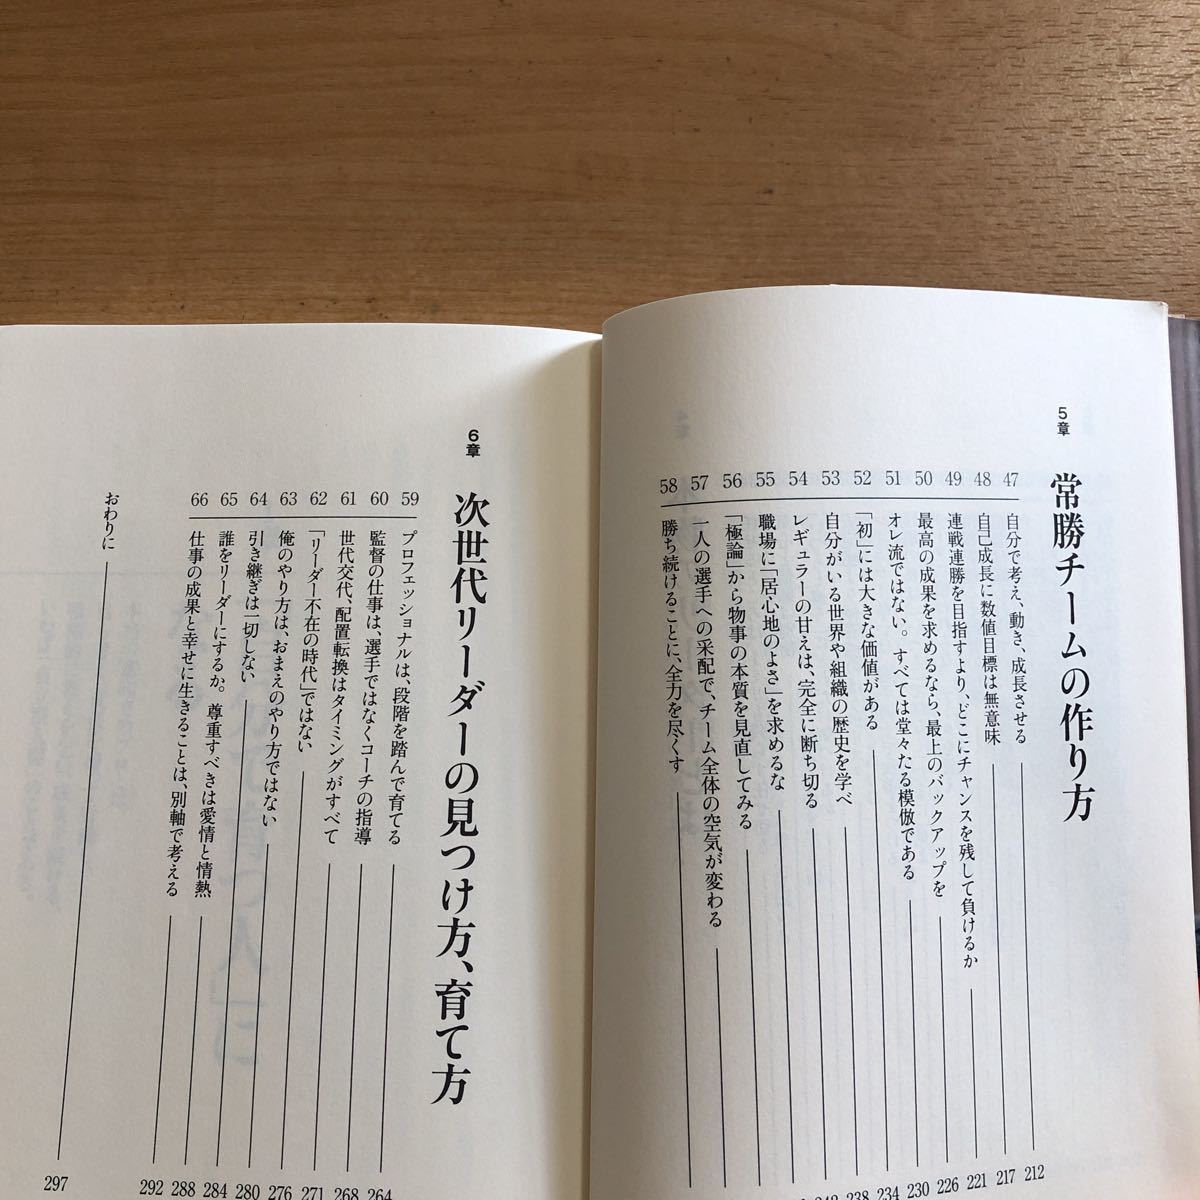 5章
常勝チームの作り方
47 自分で考え、動き、成長させる 212
48 自己成長に数値目標は無意味 217
49 連戦連勝を目指すより、どこにチャンスを残して負けるか 221
50 最高の成果を求めるなら、最上のバックアップを 226
51 オレ流ではない。すべては堂々たる模倣である 230
52 「初」には大きな価値がある 234
53 自分がいる世界や組織の歴史を学べ 238
54 レギュラーの甘えは、完全に断ち切る
55 職場に「居心地のよさ」を求めるな
56 「極論」から物事の本質を見直してみる
57 一人の選手への采配で、チーム全体の空気が変わる
58 勝ち続けることに、全力を尽くす
6章
次世代リーダーの見つけ方、育て方
59 プロフェッショナルは、段階を踏んで育てる 264
60 監督の仕事は、選手ではなくコーチの指導 268
61 世代交代、配置転換はタイミングがすべて 271
62 「リーダー不在の時代」ではない 276
63 俺のやり方は、おまえのやり方ではない 280
64 引き継ぎは一切しない 284
65 誰をリーダーにするか。尊重すべきは愛情と情熱 288
66 仕事の成果と幸せに生きることは、別軸で考える 292
おわりに 297